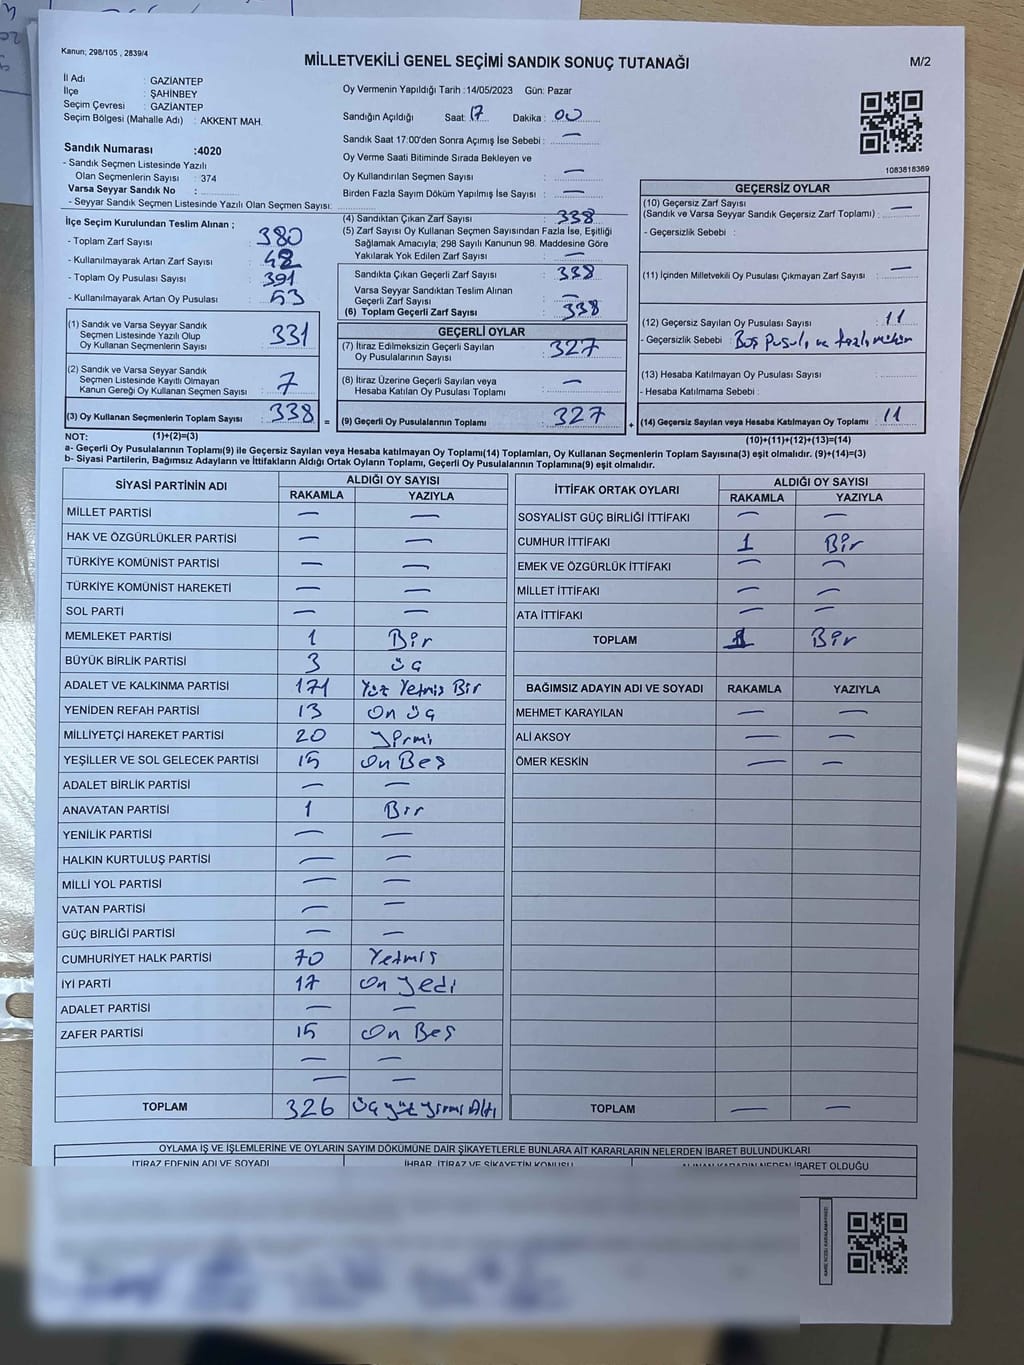 Kanun; 298/105 , 2839/4
MİLLETVEKİLİ GENEL SEÇİMİ SANDIK SONUÇ TUTANAĞI
M/2
İl Adı : GAZİANTEP
İlçe : ŞAHİNBEY
Seçim Çevresi : GAZİANTEP
Seçim Bölgesi (Mahalle Adı) : AKKENT MAH.
Sandık Numarası :4020
- Sandık Seçmen Listesinde Yazılı
Olan Seçmenlerin Sayısı : 374
Varsa Seyyar Sandık No :
- Seyyar Sandık Seçmen Listesinde Yazılı Olan Seçmen Sayısı:
Oy Vermenin Yapıldığı Tarih :14/05/2023 Gün: Pazar
Sandığın Açıldığı Saat: 17 Dakika : 00
Sandık Saat 17:00'den Sonra Açımış İse Sebebi : —
Oy Verme Saati Bitiminde Sırada Bekleyen ve
Oy Kullandırılan Seçmen Sayısı : —
Birden Fazla Sayım Döküm Yapılmış İse Sayısı : —
1083818369
İlçe Seçim Kurulundan Teslim Alınan ;
- Toplam Zarf Sayısı : 380
- Kullanılmayarak Artan Zarf Sayısı : 42
- Toplam Oy Pusulası Sayısı : 391
- Kullanılmayarak Artan Oy Pusulası : 53
(1) Sandık ve Varsa Seyyar Sandık
Seçmen Listesinde Yazılı Olup
Oy Kullanan Seçmenlerin Sayısı : 331
(2) Sandık ve Varsa Seyyar Sandık
Seçmen Listesinde Kayıtlı Olmayan
Kanun Gereği Oy Kullanan Seçmen Sayısı : 7
(3) Oy Kullanan Seçmenlerin Toplam Sayısı : 338 =
(4) Sandıktan Çıkan Zarf Sayısı : 338
(5) Zarf Sayısı Oy Kullanan Seçmen Sayısından Fazla İse, Eşitliği
Sağlamak Amacıyla, 298 Sayılı Kanunun 98. Maddesine Göre
Yakılarak Yok Edilen Zarf Sayısı : —
Sandıkta Çıkan Geçerli Zarf Sayısı : 338
Varsa Seyyar Sandıktan Teslim Alınan
Geçerli Zarf Sayısı : —
(6) Toplam Geçerli Zarf Sayısı : 338
GEÇERLİ OYLAR
(7) İtiraz Edilmeksizin Geçerli Sayılan
Oy Pusulalarının Sayısı : 327
(8) İtiraz Üzerine Geçerli Sayılan veya
Hesaba Katılan Oy Pusulası Toplamı : —
(9) Geçerli Oy Pusulalarının Toplamı : 327 +
GEÇERSİZ OYLAR
(10) Geçersiz Zarf Sayısı
(Sandık ve Varsa Seyyar Sandık Geçersiz Zarf Toplamı) : —
- Geçersizlik Sebebi :
(11) İçinden Milletvekili Oy Pusulası Çıkmayan Zarf Sayısı : —
(12) Geçersiz Sayılan Oy Pusulası Sayısı : 11
- Geçersizlik Sebebi : Boş Pusula ve fazla mühür
(13) Hesaba Katılmayan Oy Pusulası Sayısı :
- Hesaba Katılmama Sebebi :
(14) Geçersiz Sayılan veya Hesaba Katılmayan Oy Toplamı : 11
NOT: (1)+(2)=(3)
(10)+(11)+(12)+(13)=(14)
a- Geçerli Oy Pusulalarının Toplamı(9) ile Geçersiz Sayılan veya Hesaba katılmayan Oy Toplamı(14) Toplamları, Oy Kullanan Seçmenlerin Toplam Sayısına(3) eşit olmalıdır. (9)+(14)=(3)
b- Siyasi Partilerin, Bağımsız Adayların ve İttifakların Aldığı Ortak Oyların Toplamı, Geçerli Oy Pusulalarının Toplamına(9) eşit olmalıdır.
SİYASİ PARTİNİN ADI ALDIĞI OY SAYISI
RAKAMLA YAZIYLA
MİLLET PARTİSİ — —
HAK VE ÖZGÜRLÜKLER PARTİSİ — —
TÜRKİYE KOMÜNİST PARTİSİ — —
TÜRKİYE KOMÜNİST HAREKETİ — —
SOL PARTİ — —
MEMLEKET PARTİSİ 1 Bir
BÜYÜK BİRLİK PARTİSİ 3 üç
ADALET VE KALKINMA PARTİSİ 171 Yüz Yetmiş Bir
YENİDEN REFAH PARTİSİ 13 On üç
MİLLİYETÇİ HAREKET PARTİSİ 20 Yirmi
YEŞİLLER VE SOL GELECEK PARTİSİ 15 On Beş
ADALET BİRLİK PARTİSİ — —
ANAVATAN PARTİSİ 1 Bir
YENİLİK PARTİSİ — —
HALKIN KURTULUŞ PARTİSİ — —
MİLLİ YOL PARTİSİ — —
VATAN PARTİSİ — —
GÜÇ BİRLİĞİ PARTİSİ — —
CUMHURİYET HALK PARTİSİ 70 Yetmiş
İYİ PARTİ 17 On Yedi
ADALET PARTİSİ — —
ZAFER PARTİSİ 15 On Beş
— —
— —
TOPLAM 326 Üç yüz yirmi Altı
İTTİFAK ORTAK OYLARI ALDIĞI OY SAYISI
RAKAMLA YAZIYLA
SOSYALİST GÜÇ BİRLİĞİ İTTİFAKI — —
CUMHUR İTTİFAKI 1 Bir
EMEK VE ÖZGÜRLÜK İTTİFAKI — —
MİLLET İTTİFAKI — —
ATA İTTİFAKI — —
TOPLAM 1 Bir
BAĞIMSIZ ADAYIN ADI VE SOYADI RAKAMLA YAZIYLA
MEHMET KARAYILAN — —
ALİ AKSOY — —
ÖMER KESKİN — —
TOPLAM — —
OYLAMA İŞ VE İŞLEMLERİNE VE OYLARIN SAYIM DÖKÜMÜNE DAİR ŞİKAYETLERLE BUNLARA AİT KARARLARIN NELERDEN İBARET BULUNDUKLARI
İTİRAZ EDENİN ADI VE SOYADI İHBAR, İTİRAZ VE ŞİKAYETİN KONUSU ALINAN KARARIN NEDEN İBARET OLDUĞU